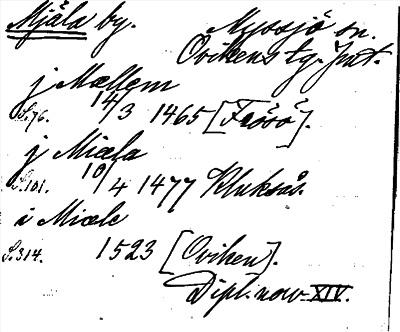 Mjäla by. Myssjö sn.
Ovikens tg. Jmt.
j Mællem
S.76. 14/3 1465 [Frösö].
j Miæla
S.101. 10/4 1477 Kluksås.
i Miæle
S.314. 1523 [Oviken].
Dipl. norv. XIV.